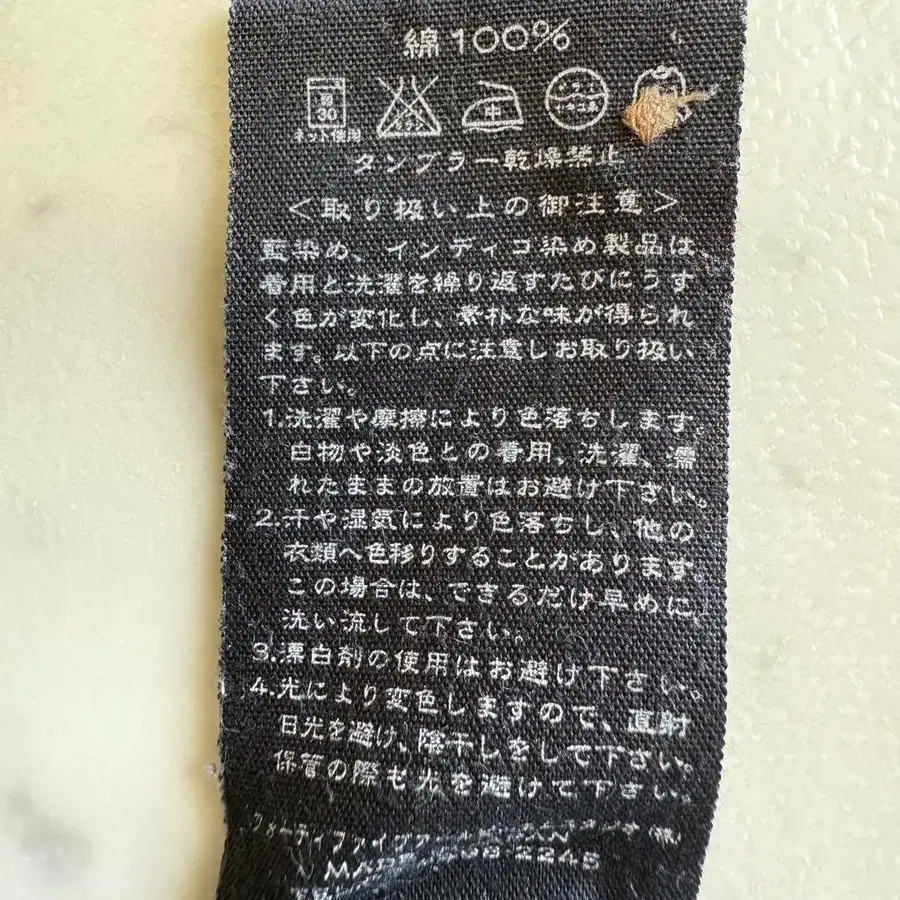 綿100%
弱
30
ネット使用
エンソサラシ
中
ドライ
セキユ系
タンブラー乾燥禁止
<取り扱い上の御注意>
藍染め、インディゴ染め製品は
着用と洗濯を繰り返すたびにうす
く色が変化し、素朴な味が得られ
ます。以下の点に注意しお取り扱い
下さい。
1.洗濯や摩擦により色落ちします。
白物や淡色との着用、洗濯、濡
れたままの放置はお避け下さい。
2.汗や湿気により色落ちし、他の
衣類へ色移りすることがあります。
この場合は、できるだけ早めに、
洗い流して下さい。
3.漂白剤の使用はお避け下さい。
4.光により変色しますので、直射
日光を避け、陰干しをして下さい。
保管の際も光を避けて下さい。